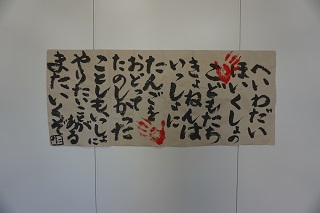 へいわだい
ほいくしょの
こどもたち
きょねんは
いっしょに
だんごを
おどって
たのしかった
ことしも、いっしょに
やりたいことがある
また、いくぞ